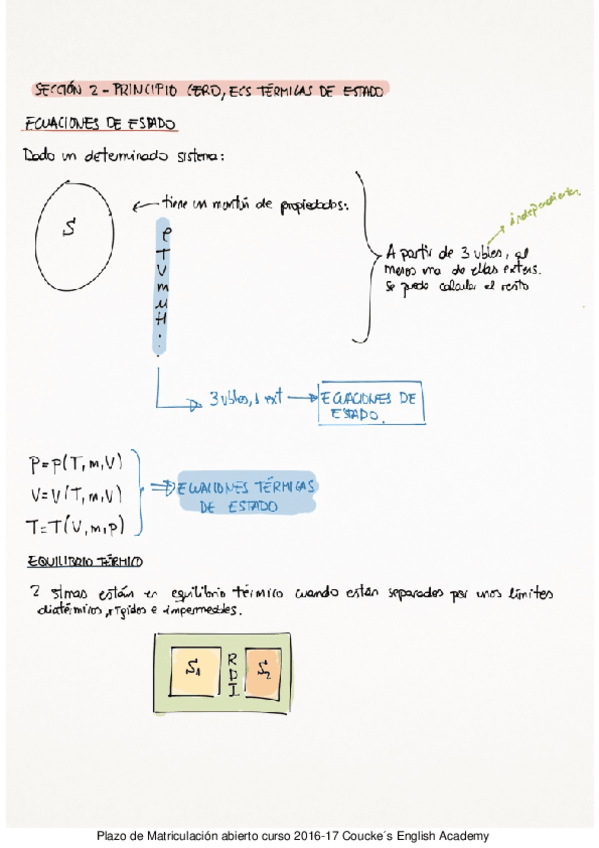 SECCIÓN 2 - PRINCIPIO CERO, ECS TÉRMICAS DE ESTADO
ECUACIONES DE ESTADO
Dado un determinado sistema:
S
tiene un montón de propiedades:
P
T
V
m
μ
H
⋮
independientes
A partir de 3 vbles, al
menos una de ellas extens.
se puede calcular el resto
3 vbles, 1 ext → ECUACIONES DE
ESTADO.
P=p(T,m,V)
V=V(T,m,V)
T=T(V,m,p)
ECUACIONES TÉRMICAS
DE ESTADO
EQUILIBRIO TÉRMICO
2 stmas están en equilibrio térmico cuando están separados por unos límites
diatérmicos, rígidos e impermeables.
S1
R
D
I
S2
Plazo de Matriculación abierto curso 2016-17 Coucke´s English Academy